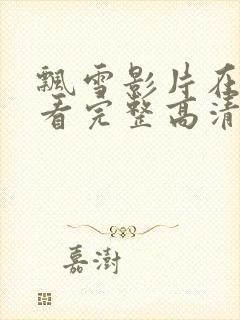 飘雪影片在
看完整高清
嘉澍